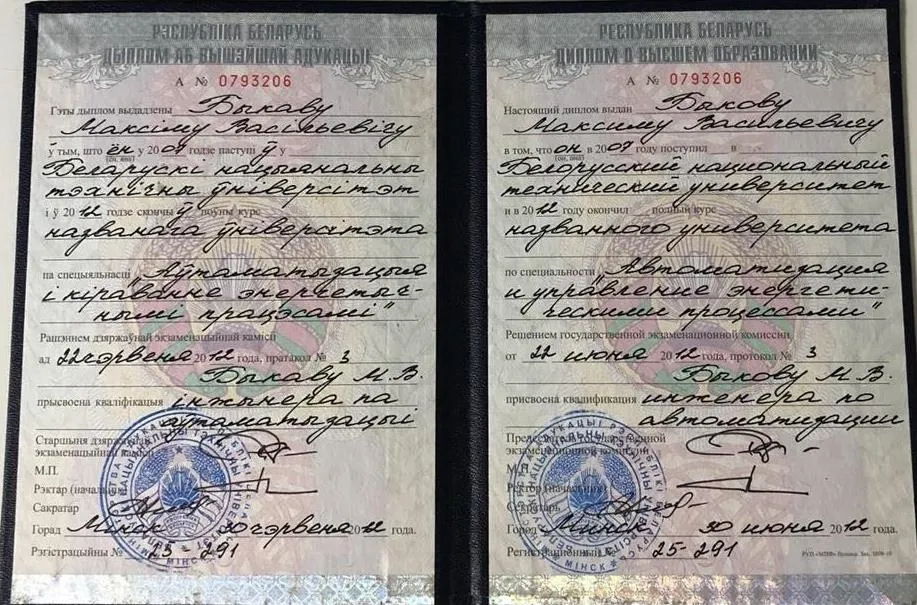 РЭСПУБЛІКА БЕЛАРУСЬ
ДЫПЛОМ АБ ВЫШЭЙШАЙ АДУКАЦЫІ
А № 0793206
Гэты дыплом выдадзены Быкаву
Максіму Васільевічу
ў тым, што ён у 2007 годзе паступіў у
(ён, яна)
Беларускі нацыянальны
тэхнічны ўніверсітэт
і ў 2012 годзе скончыў поўны курс
названага ўніверсітэта
па спецыяльнасці „Аўтаматызацыя
і кіраванне энергетыч-
нымі працэсамі"
Рашэннем дзяржаўнай экзаменацыйнай камісіі
ад 22 чэрвеня 2012 года, пратакол № 3
Быкаву М.В.
прысвоена кваліфікацыя інжынера па
аўтаматызацыі
Старшыня дзяржаўнай
экзаменацыйнай камісіі
М.П.
Рэктар (начальнік)
Сакратар
Горад Мінск 30 чэрвеня 2012 года.
Рэгістрацыйны № 25-291
МІНСК
РЕСПУБЛИКА БЕЛАРУСЬ
ДИПЛОМ О ВЫСШЕМ ОБРАЗОВАНИИ
А № 0793206
Настоящий диплом выдан Быкову
Максиму Васильевичу
в том, что он в 2007 году поступил в
(он, она)
Белорусский национальный
технический университет
и в 2012 году окончил полный курс
названного университета
по специальности „Автоматизация
и управление энергети-
ческими процессами"
Решением государственной экзаменационной комиссии
от 22 июня 2012 года, протокол № 3
Быкову М.В.
присвоена квалификация инженера по
автоматизации
Председатель государственной
экзаменационной комиссии
М.П.
Ректор (начальник)
Секретарь
Город Минск 30 июня 2012 года.
Регистрационный № 25-291
МІНСК